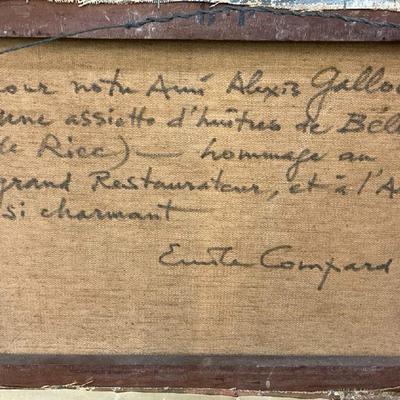 our notre Ami Alexis Gallo
une assiette d'huîtres de Bél
de Riec) — hommage au
grand Restaurateur, et à l'A
si charmant
Emile Compard